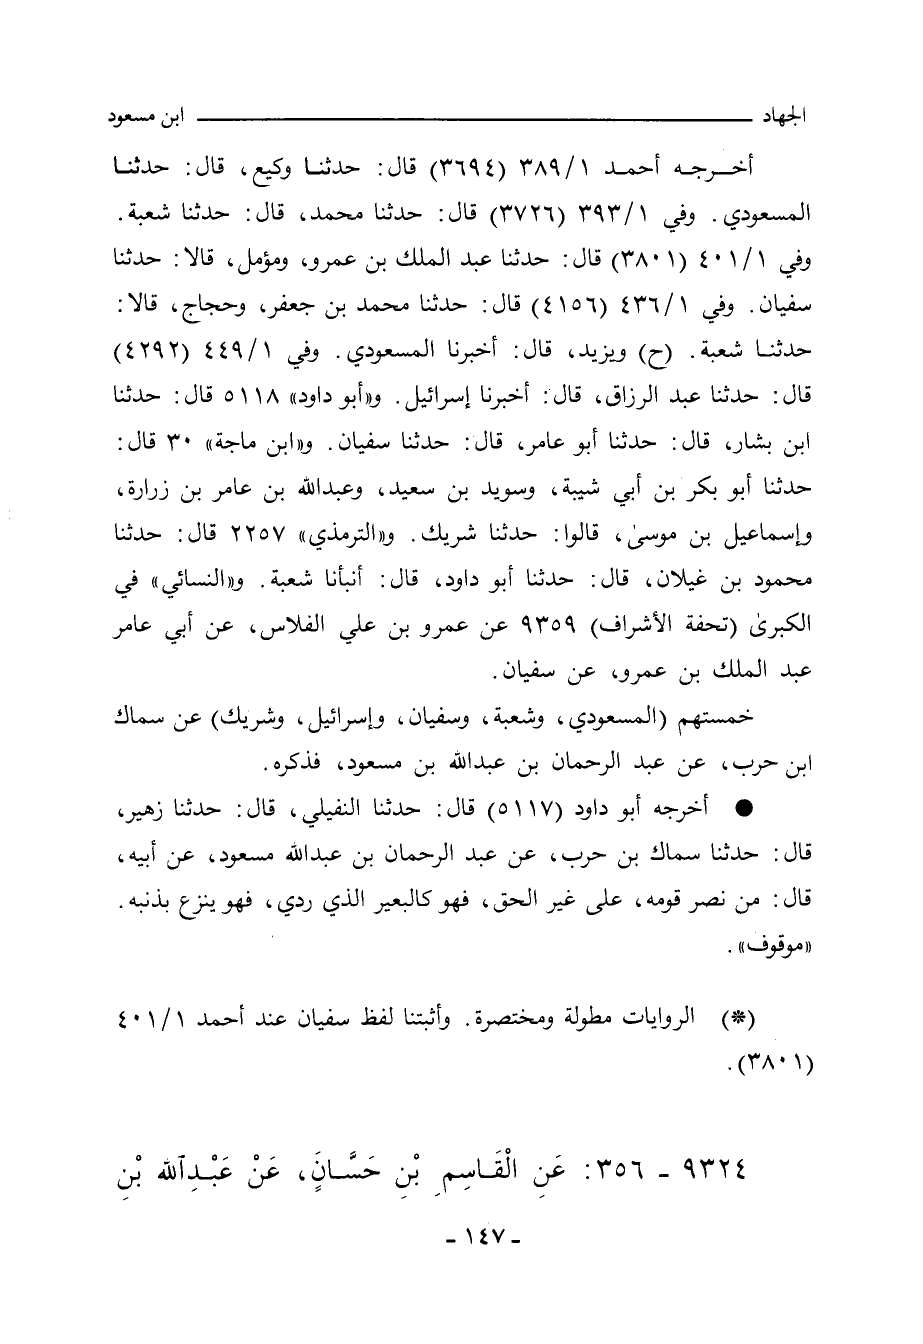 الجهاد ــــــــ ابن مسعود
أخـــرجـه أحمـد ٣٨٩/١ (٣٦٩٤) قال: حدثنـا وكيع، قال: حدثنـا
المسعودي. وفي ٣٩٣/١ (٣٧٢٦) قال: حدثنا محمد، قال: حدثنا شعبة.
وفي ٤٠١/١ (٣٨٠١) قال: حدثنا عبد الملك بن عمرو، ومؤمل، قالا: حدثنا
سفيان. وفي ٤٣٦/١ (٤١٥٦) قال: حدثنا محمد بن جعفر، وحجاج، قالا:
حدثنـا شعبة. (ح) ويزيد، قال: أخبرنا المسعودي. وفي ٤٤٩/١ (٤٢٩٢)
قال: حدثنا عبد الرزاق، قال: أخبرنا إسرائيل. و«أبو داود» ٥١١٨ قال: حدثنا
ابن بشار، قال: حدثنا أبو عامر، قال: حدثنا سفيان. و«ابن ماجة» ٣٠ قال:
حدثنا أبو بكر بن أبي شيبة، وسويد بن سعيد، وعبدالله بن عامر بن زرارة،
وإسماعيل بن موسىٰ، قالوا: حدثنا شريك. و«الترمذي» ٢٢٥٧ قال: حدثنا
محمود بن غيلان، قال: حدثنا أبو داود، قال: أنبأنا شعبة. و«النسائي» في
الكبرىٰ (تحفة الأشراف) ٩٣٥٩ عن عمرو بن علي الفلاس، عن أبي عامر
عبد الملك بن عمرو، عن سفيان.
خمستهم (المسعودي، وشعبة، وسفيان، وإسرائيل، وشريك) عن سماك
ابن حرب، عن عبد الرحمان بن عبدالله بن مسعود، فذكره.
● أخرجه أبو داود (٥١١٧) قال: حدثنا النفيلي، قال: حدثنا زهير،
قال: حدثنا سماك بن حرب، عن عبد الرحمان بن عبدالله مسعود، عن أبيه،
قال: من نصر قومه، على غير الحق، فهو كالبعير الذي ردي، فهو ينزع بذنبه.
«موقوف».
(*) الروايات مطولة ومختصرة. وأثبتنا لفظ سفيان عند أحمد ٤٠١/١
(٣٨٠١).
٩٣٢٤ - ٣٥٦: عَنِ الْقَـاسِمِ بْنِ حَسَّـانَ، عَنْ عَبْـدِاللهِ بْنِ
- ١٤٧ -